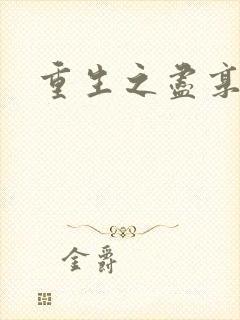 重生之盡
金爵